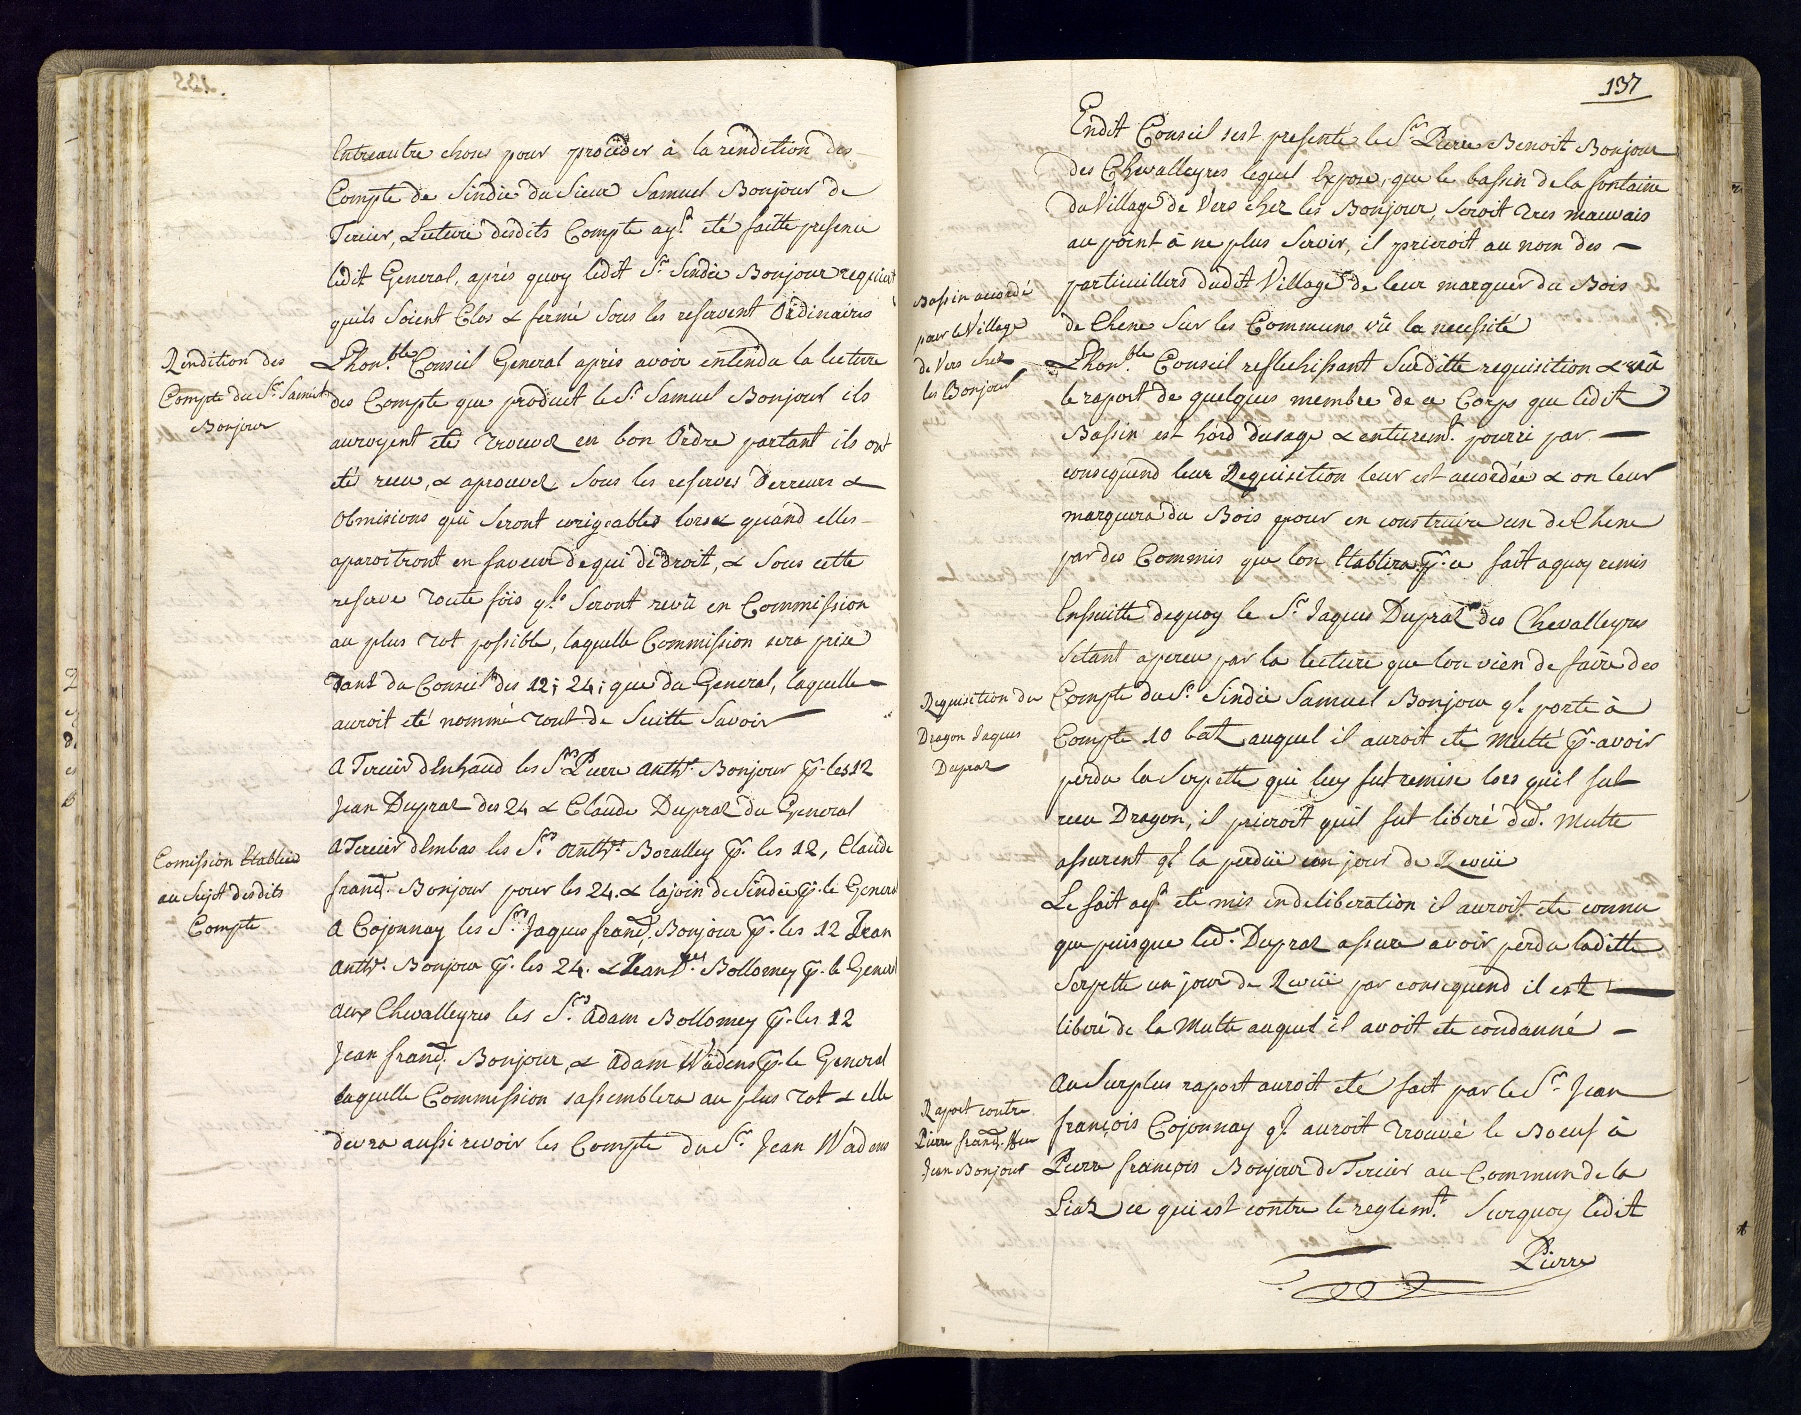 Entreautre chose pour procéder à la rendition des
Compte de Sindic du Sieur Samuel Bonjour de
Tercier, Lecture desdits Compte ayt. eté faitte presence
ledit General, après quoy ledit Sr. Sindic Bonjour requiert
quils soient Clos & fermé sous les reservent Ordinaires
Rendition des
Compte du Sr. Samuel
Bonjour
Lhonble. Conseil General apres avoir entendu la lecture
des Compte que produit le Sr. Samuel Bonjour ils
auroyent eté trouvez en bon Ordre partant ils ont
été receu, & aprouvez sous les reserves Derreurs &
Obmisions qui seront corigeables lors & quand elles
aparoitront en faveur de qui de droit, & sous cette
reserve toute fois ql. seront revû en Commission
au plus tot possible, laquelle Commission sera prise
tant du Conseil des 12; 24; que du General, laquelle
auroit eté nommé tout de Suitte Savoir
A Tercier dEnhaud les Srs. Pierre Anthe. Bonjour p. les 12
Jean Dupraz des 24 & Claude Dupraz du General
Comission Etablied
au Sujet desdits
Compte
A Tercier dEmbas les Srs. Anthe. Boralley p. les 12, Claude
franç. Bonjour pour les 24. & lajoin de Sindic p. le General
A Cojonnay les Srs. Jaques franç. Bonjour p. les 12 Jean
Anthe. Bonjour p. les 24. & Jean Dl. Bollomey p. le General
Aux Chevalleyres les Srs. Adam Bollomey p. les 12
Jean franç. Bonjour, & Adam Wädens p. le General
laquelle Commission sassemblera au plus tot & elle
devra aussi revoir les Compte du Sr. Jean Wadens
137
Endit Conseil sest presenté le Sr. Pierre Benoit Bonjour
des Chevalleyres lequel Expose, que le bassin de la fontaine
du Village de Vers chez les Bonjour, seroit tres mauvais
au point à ne plus servir, il prieroit au nom des
particuillers dudit Village de leur marquer du Bois
de Chene sur les Communs vû la necessité
Bassin accordé
pour le Village
de Vers chez
les Bonjour
Lhonble. Conseil reflechissant Surditte requisition & vû
le raport de quelques membre de ce Corps que ledit
Bassin est hord dusage & entieremt. pourri par
consequend leur Requisition leur est accordée & on leur
marquera du Bois pour en construire un de Chene
par des Commis que lon Etablira p. ce fait aquoy remis
Ensuitte dequoy le Sr. Jaques Dupraz des Chevalleyres
Setant aperceu par la lecture que lon vien de faire des
Requisition du
Dragon Jaques
Dupraz
Compte du Sr. Sindic Samuel Bonjour ql. porte à
Compte 10 batz auquel il auroit eté Multé p. avoir
perdu la Serpette qui luy fut remise lors quil fut
receu Dragon, il prieroit quil fut liberé dud. Multe
assurent ql. la perdüe un jour de Revüe
Le fait ayt. eté mis endeliberation il auroit eté connu
que puisque led. Dupraz assure avoir perdu laditte
Serpette un jour de Revüe par consequend il est
liberé de la Multe auquel il avoit eté condanné
Au Surplus raport auroit eté fait par le Sr. Jean
Raport contre
Pierre franç. feu
Jean Bonjour
françois Cojonnay ql. auroit trouvé le Boeuf à
Pierre françois Bonjour de Tercier au Commun de la
Liaz ce qui est contre le reglemt. Surquoy ledit
Pierre